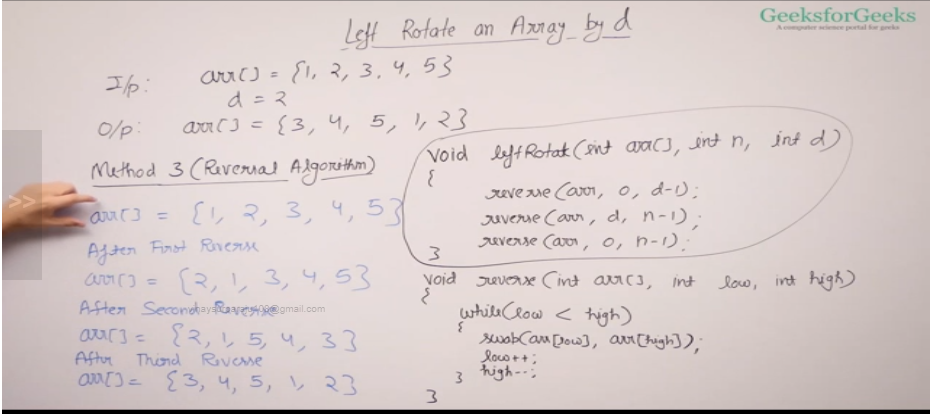 Left Rotate an Array by d
GeeksforGeeks
A computer science portal for geeks
I/p: arr[] = {1, 2, 3, 4, 5}
d = 2
O/p: arr[] = {3, 4, 5, 1, 2}
Method 3 (Reversal Algorithm)
arr[] = {1, 2, 3, 4, 5}
After First Reverse
arr[] = {2, 1, 3, 4, 5}
After Second Reverse
arr[] = {2, 1, 5, 4, 3}
After Third Reverse
arr[] = {3, 4, 5, 1, 2}
void leftRotat(int arr[], int n, int d)
{
reverse(arr, 0, d-1);
reverse(arr, d, n-1);
reverse(arr, 0, n-1);
}
void reverse(int arr[], int low, int high)
{
while(low < high)
{
swap(arr[low], arr[high]);
low++;
high--;
}
}